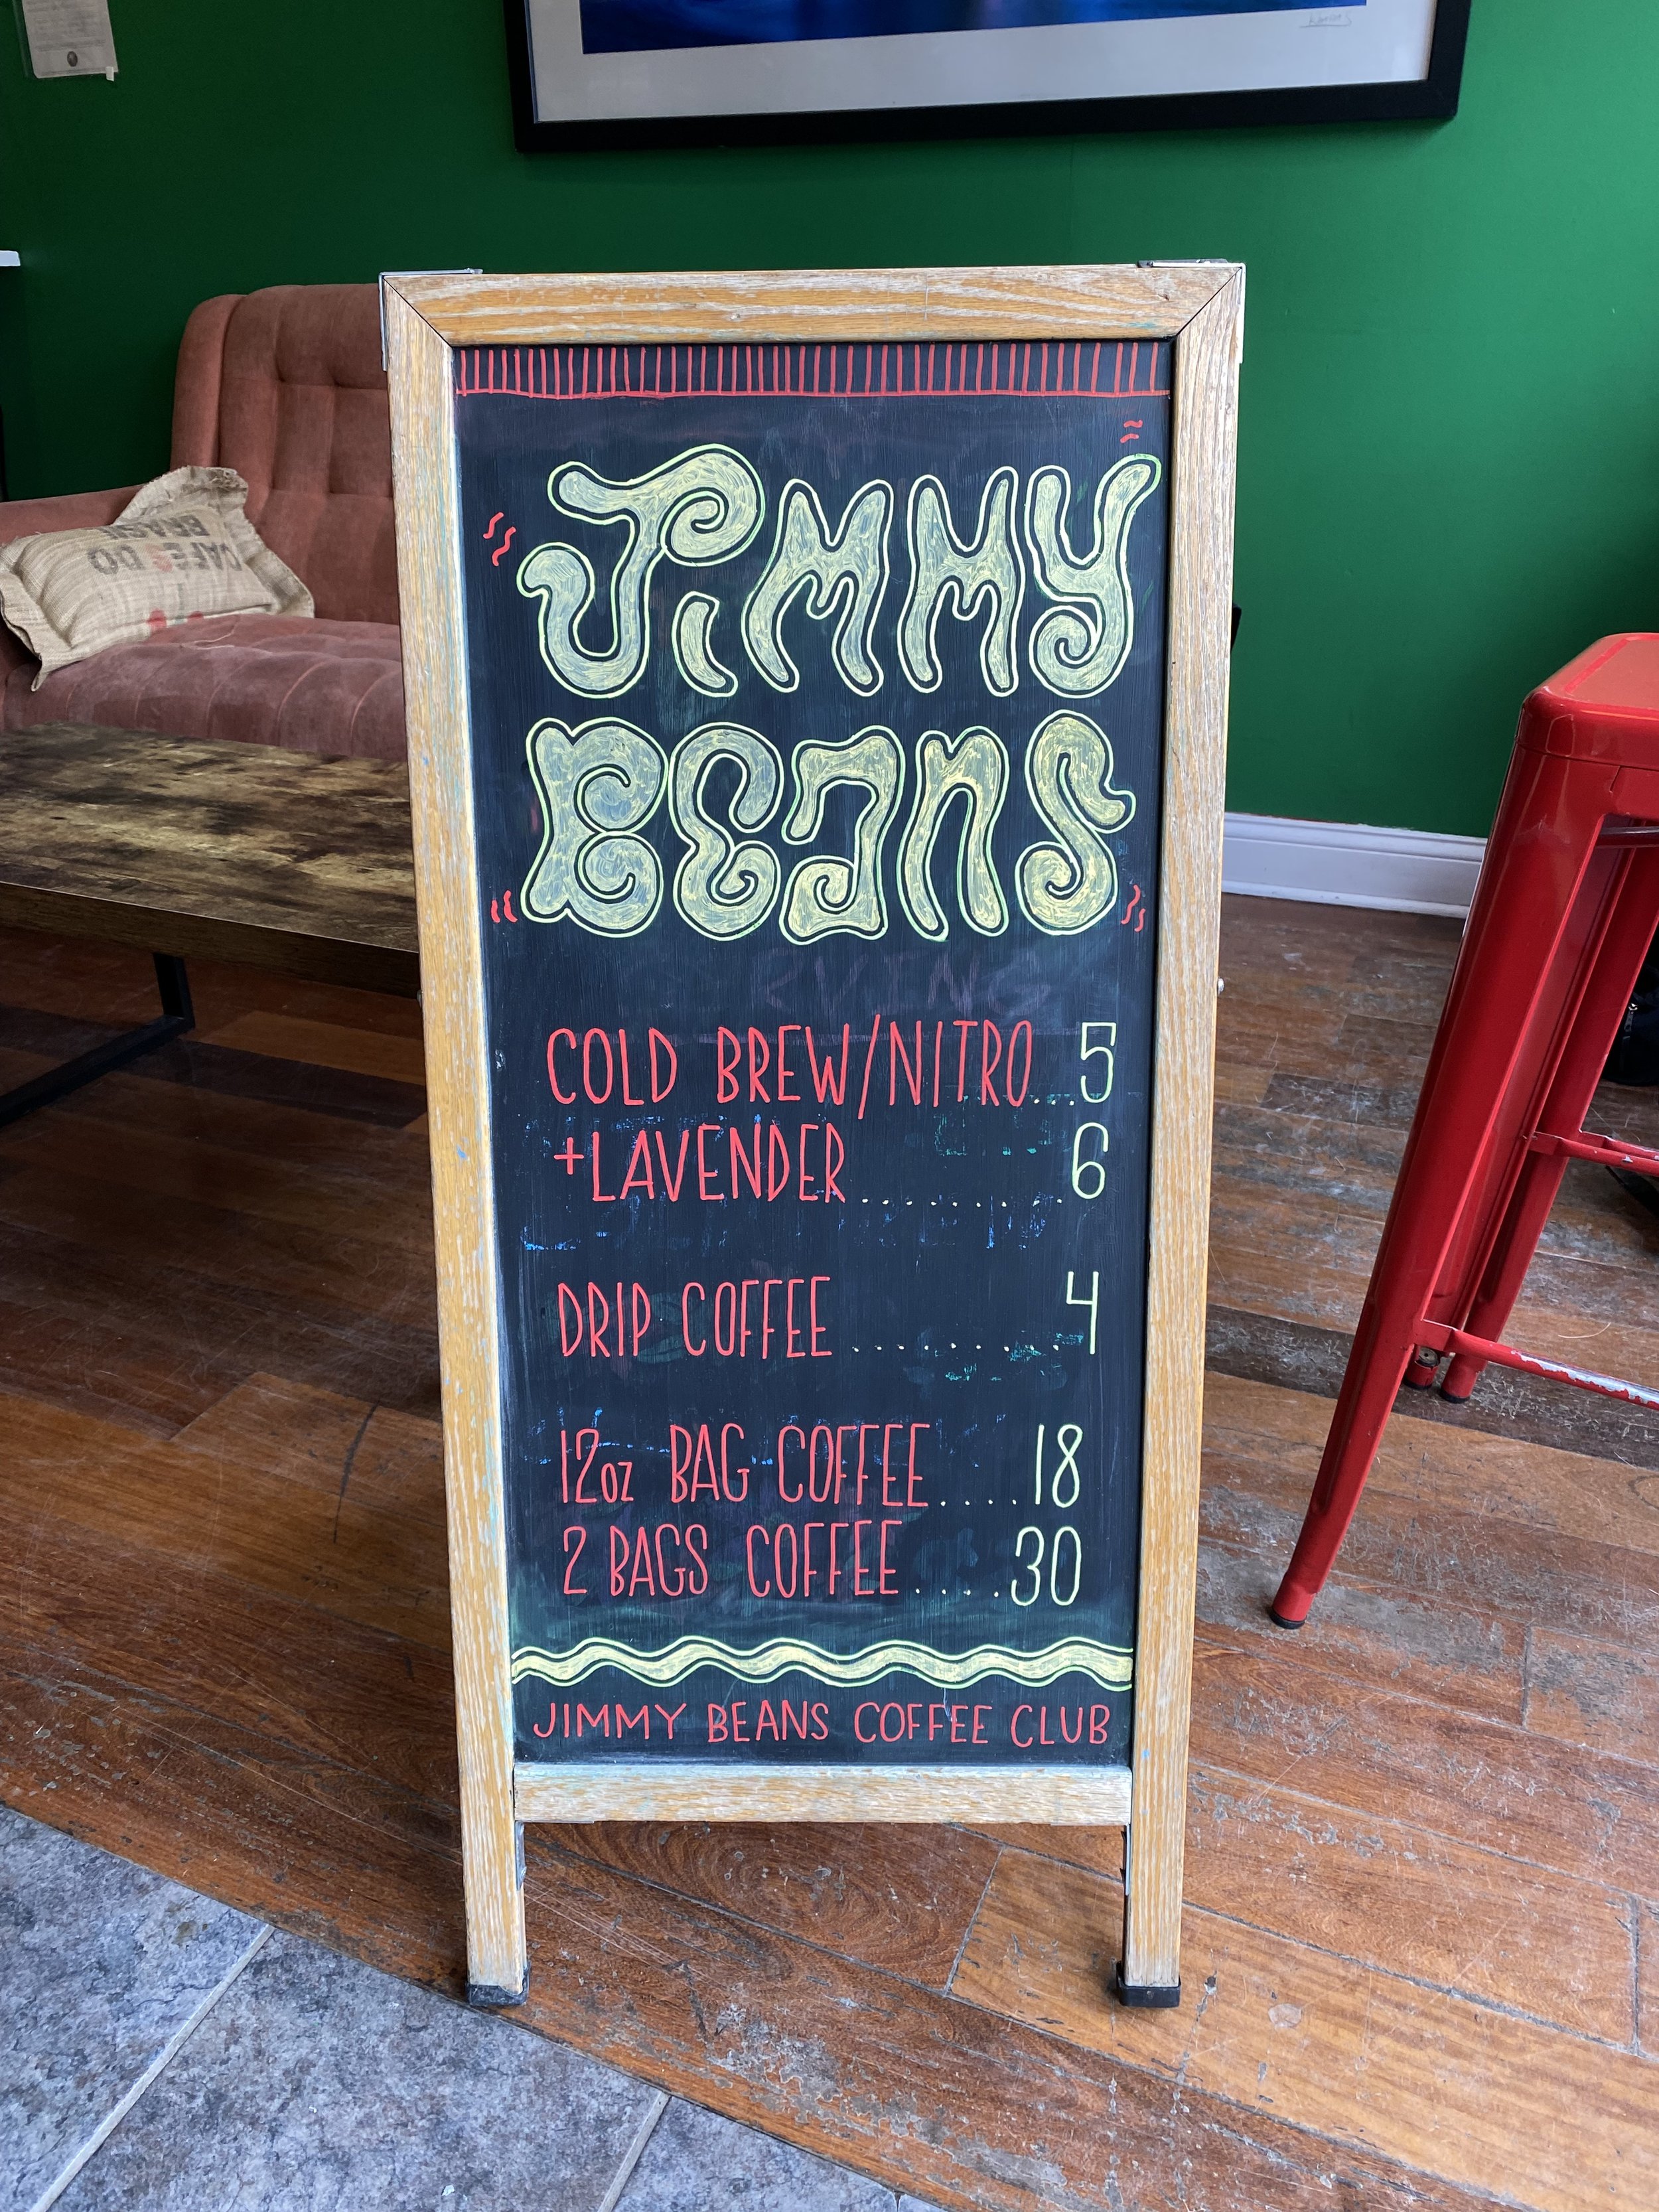 JiMMY
BEANS
COLD BREW/NITRO...5
+LAVENDER........6
DRIP COFFEE........4
12oz BAG COFFEE....18
2 BAGS COFFEE....30
JIMMY BEANS COFFEE CLUB
CAFES DO
BRASIL